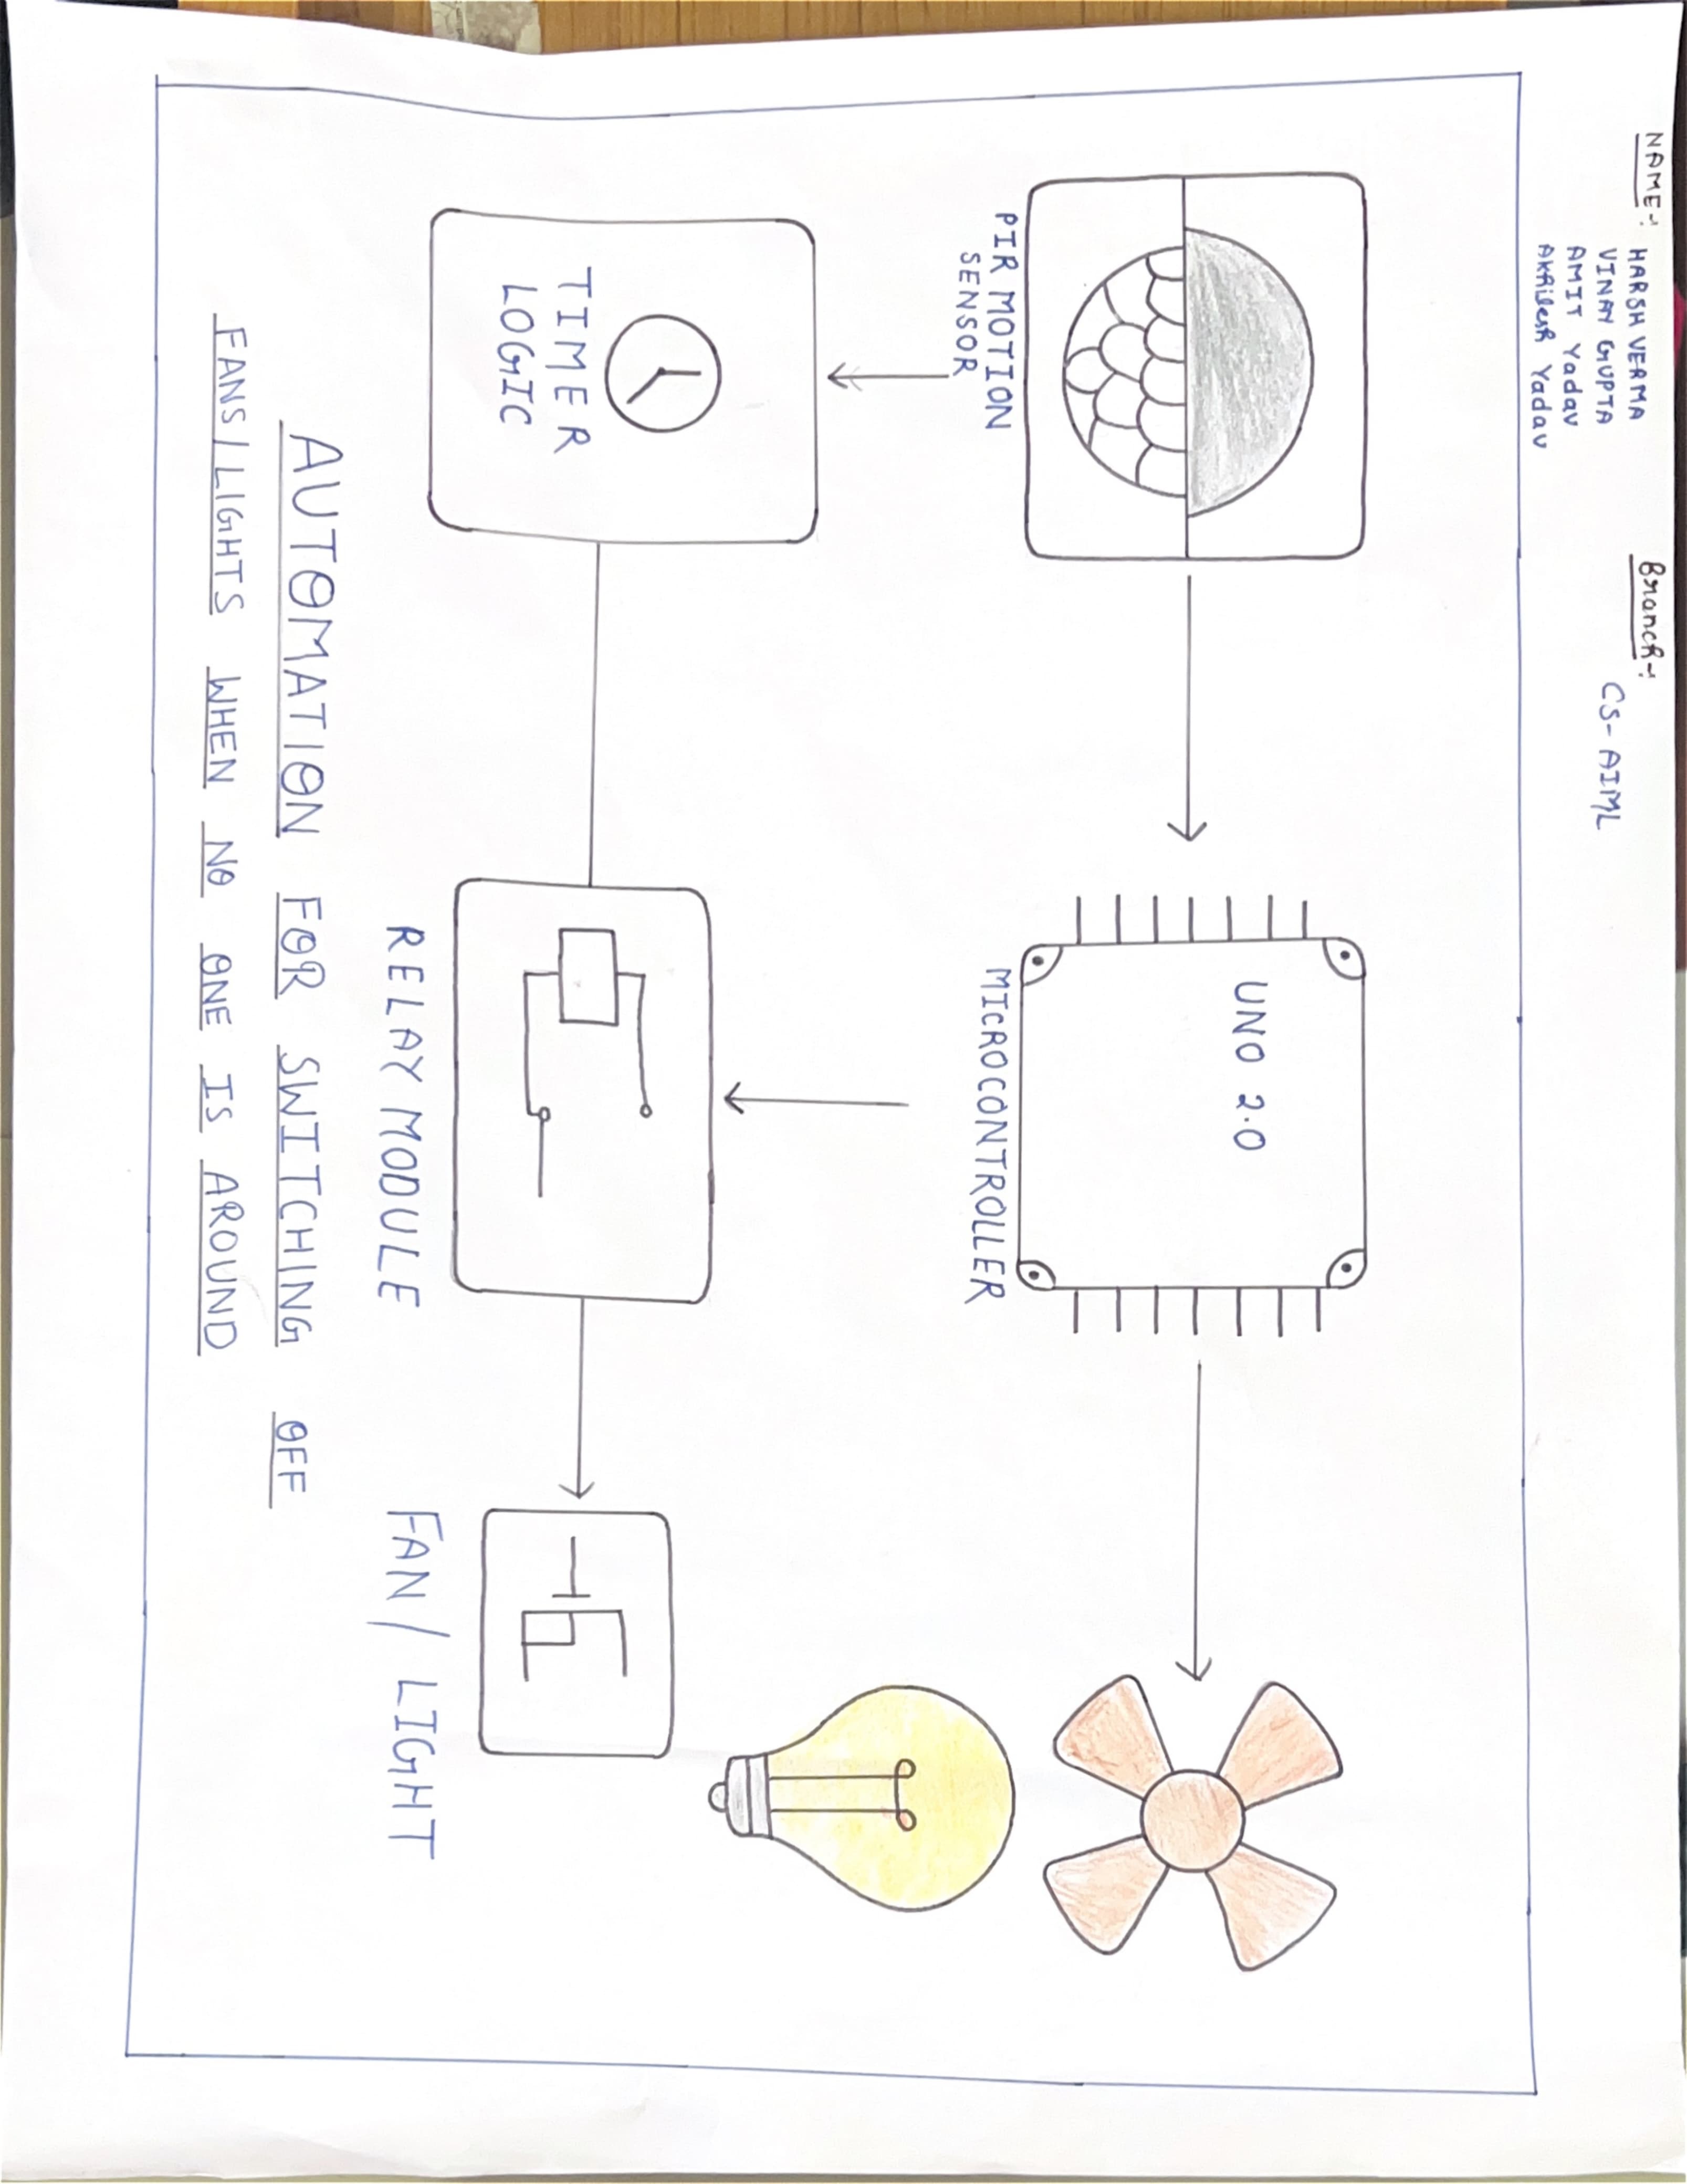 NAME-:
HARSH VERMA
VINAY GUPTA
AMIT Yadav
Akhilesh Yadav
Branch-:
CS-AIML
PIR MOTION
SENSOR
UNO 2.0
MICROCONTROLLER
TIMER
LOGIC
RELAY MODULE
FAN/LIGHT
AUTOMATION FOR SWITCHING OFF
FANS/LIGHTS WHEN NO ONE IS AROUND